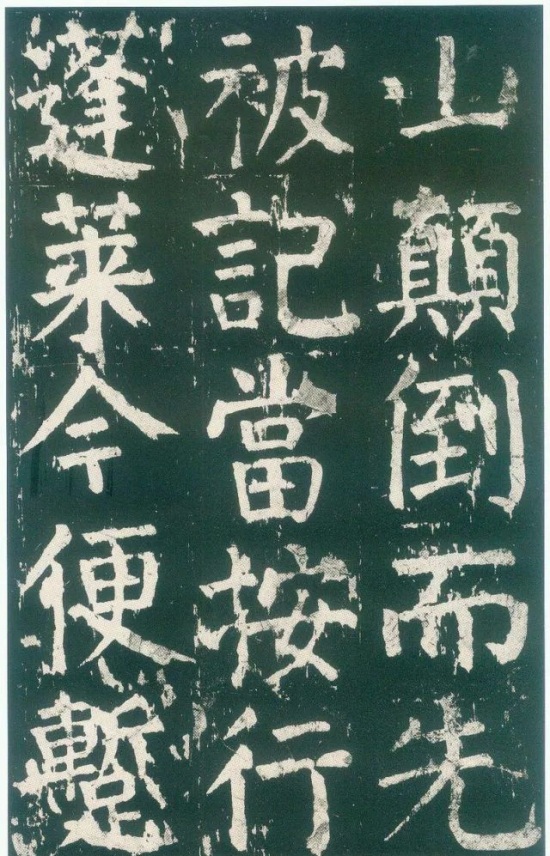 山顛倒而先
被記當按行
蓬萊今便蹔